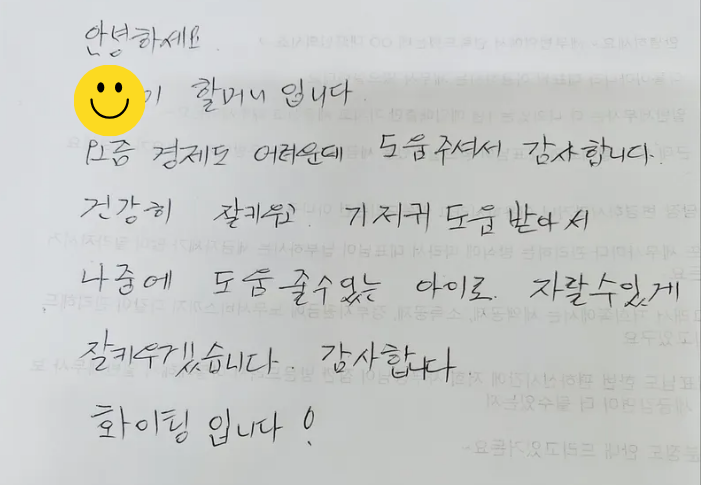 안녕하세요.
기 할머니 입니다.
요즘 경제도 어려운데 도움주셔서 감사합니다.
건강히 잘키우고. 기저귀 도움 받아서
나중에 도움 줄수있는 아이로. 자랄수있게
잘키우겠습니다. 감사합니다.
화이팅 입니다!